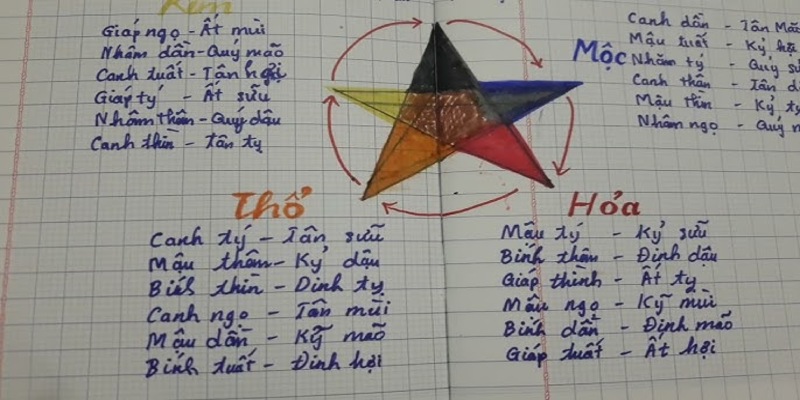 Kim
Giáp ngọ - Ất mùi
Nhâm dần - Quý mão
Canh tuất - Tân hợi
Giáp tý - Ất sửu
Nhâm thân - Quý dậu
Canh thìn - Tân tỵ
Mộc
Canh dần - Tân Mã
Mậu tuất - Kỷ hợi
Nhâm tý - Quý sử
Canh thân - Tân d
Mậu thìn - Kỷ tỵ
Nhâm ngọ - Quý m
Thổ
Canh tý - Tân sửu
Mậu thân - Kỷ dậu
Bính thìn - Đinh tỵ
Canh ngọ - Tân mùi
Mậu dần - Kỹ mão
Bính tuất - Đinh hợi
Hỏa
Mậu tý - Kỷ sửu
Bính thân - Đinh dậu
Giáp thình - Ất tỵ
Mậu ngọ - Kỹ mùi
Bính dần - Định mão
Giáp tuất - Ất hợi